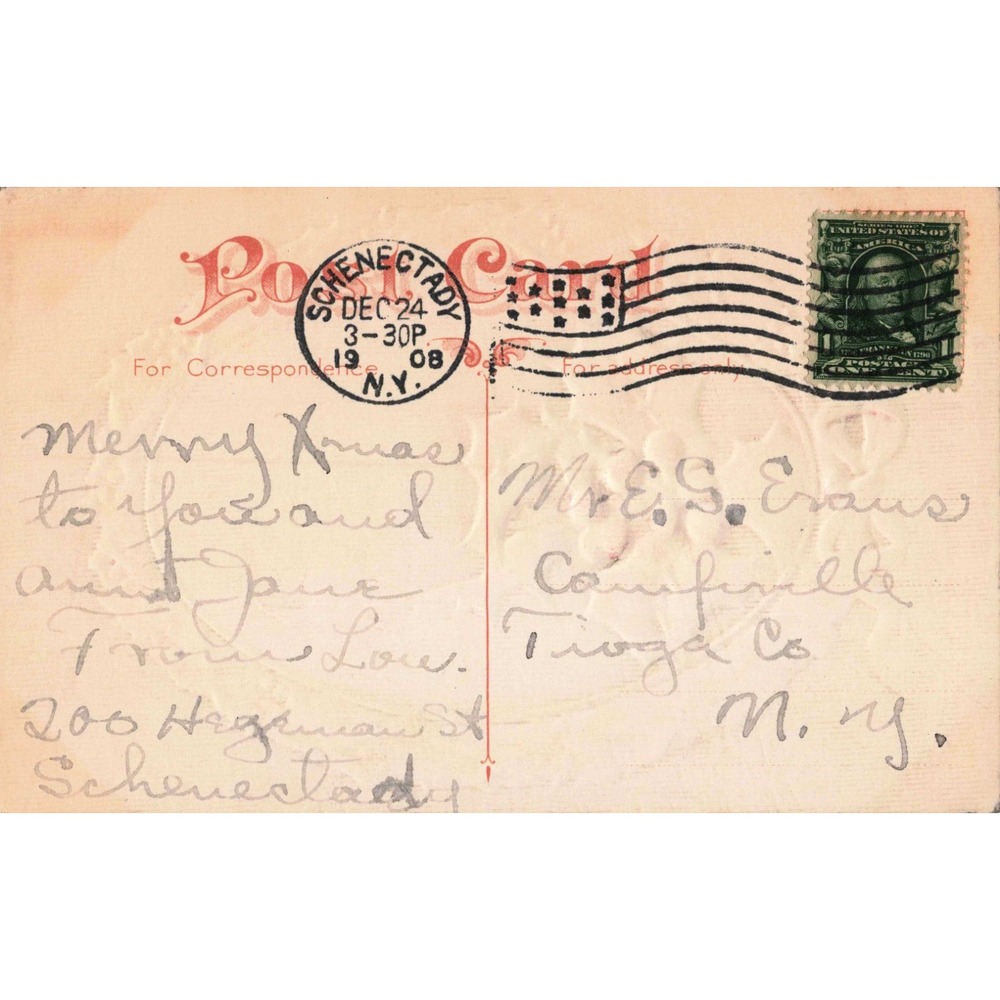 Post Card
SCHENECTADY
DEC 24
3-30P
1908
N.Y.
SERIES 1902
UNITED STATES OF
AMERICA
1706 FRANKLIN 1790
1 POSTAGE 1
ONE CENT
For Correspondence
For address only
Merry Xmas
to you and
aunt Jane
From Lou.
200 Hegeman St
Schenectady
Mr E. S. Evans
Campville
Tioga Co
N. Y.